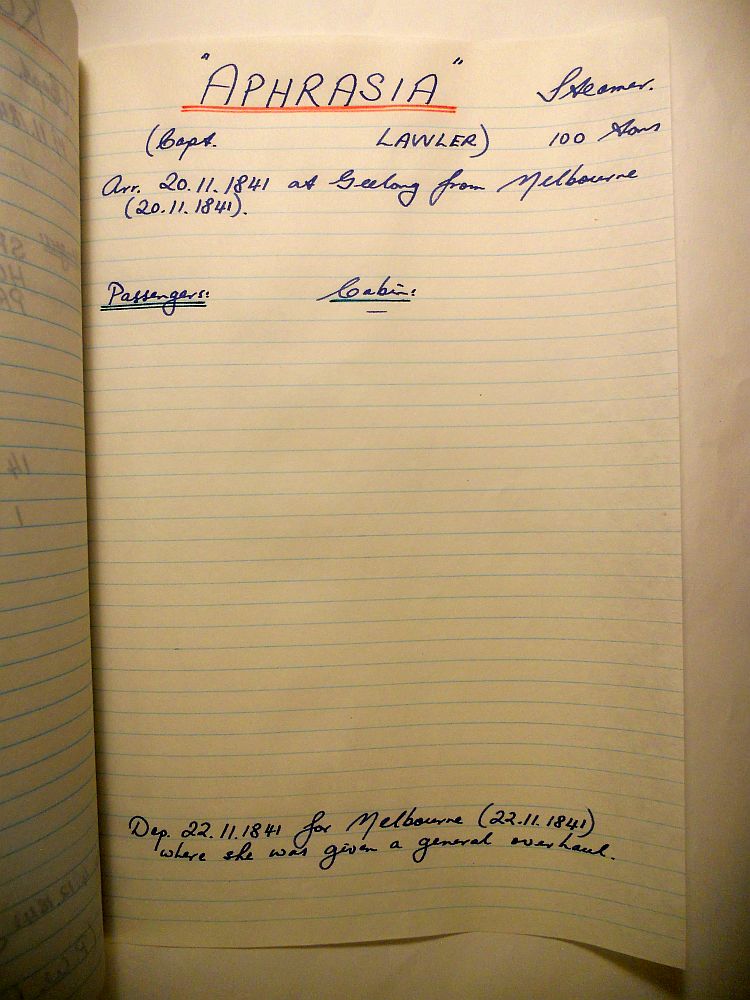 "APHRASIA" Steamer.
(Capt. LAWLER) 100 tons
Arr. 20.11.1841 at Geelong from Melbourne
(20.11.1841).
Passengers: Cabin:
—
Dep. 22.11.1841 for Melbourne (22.11.1841)
where she was given a general overhaul.